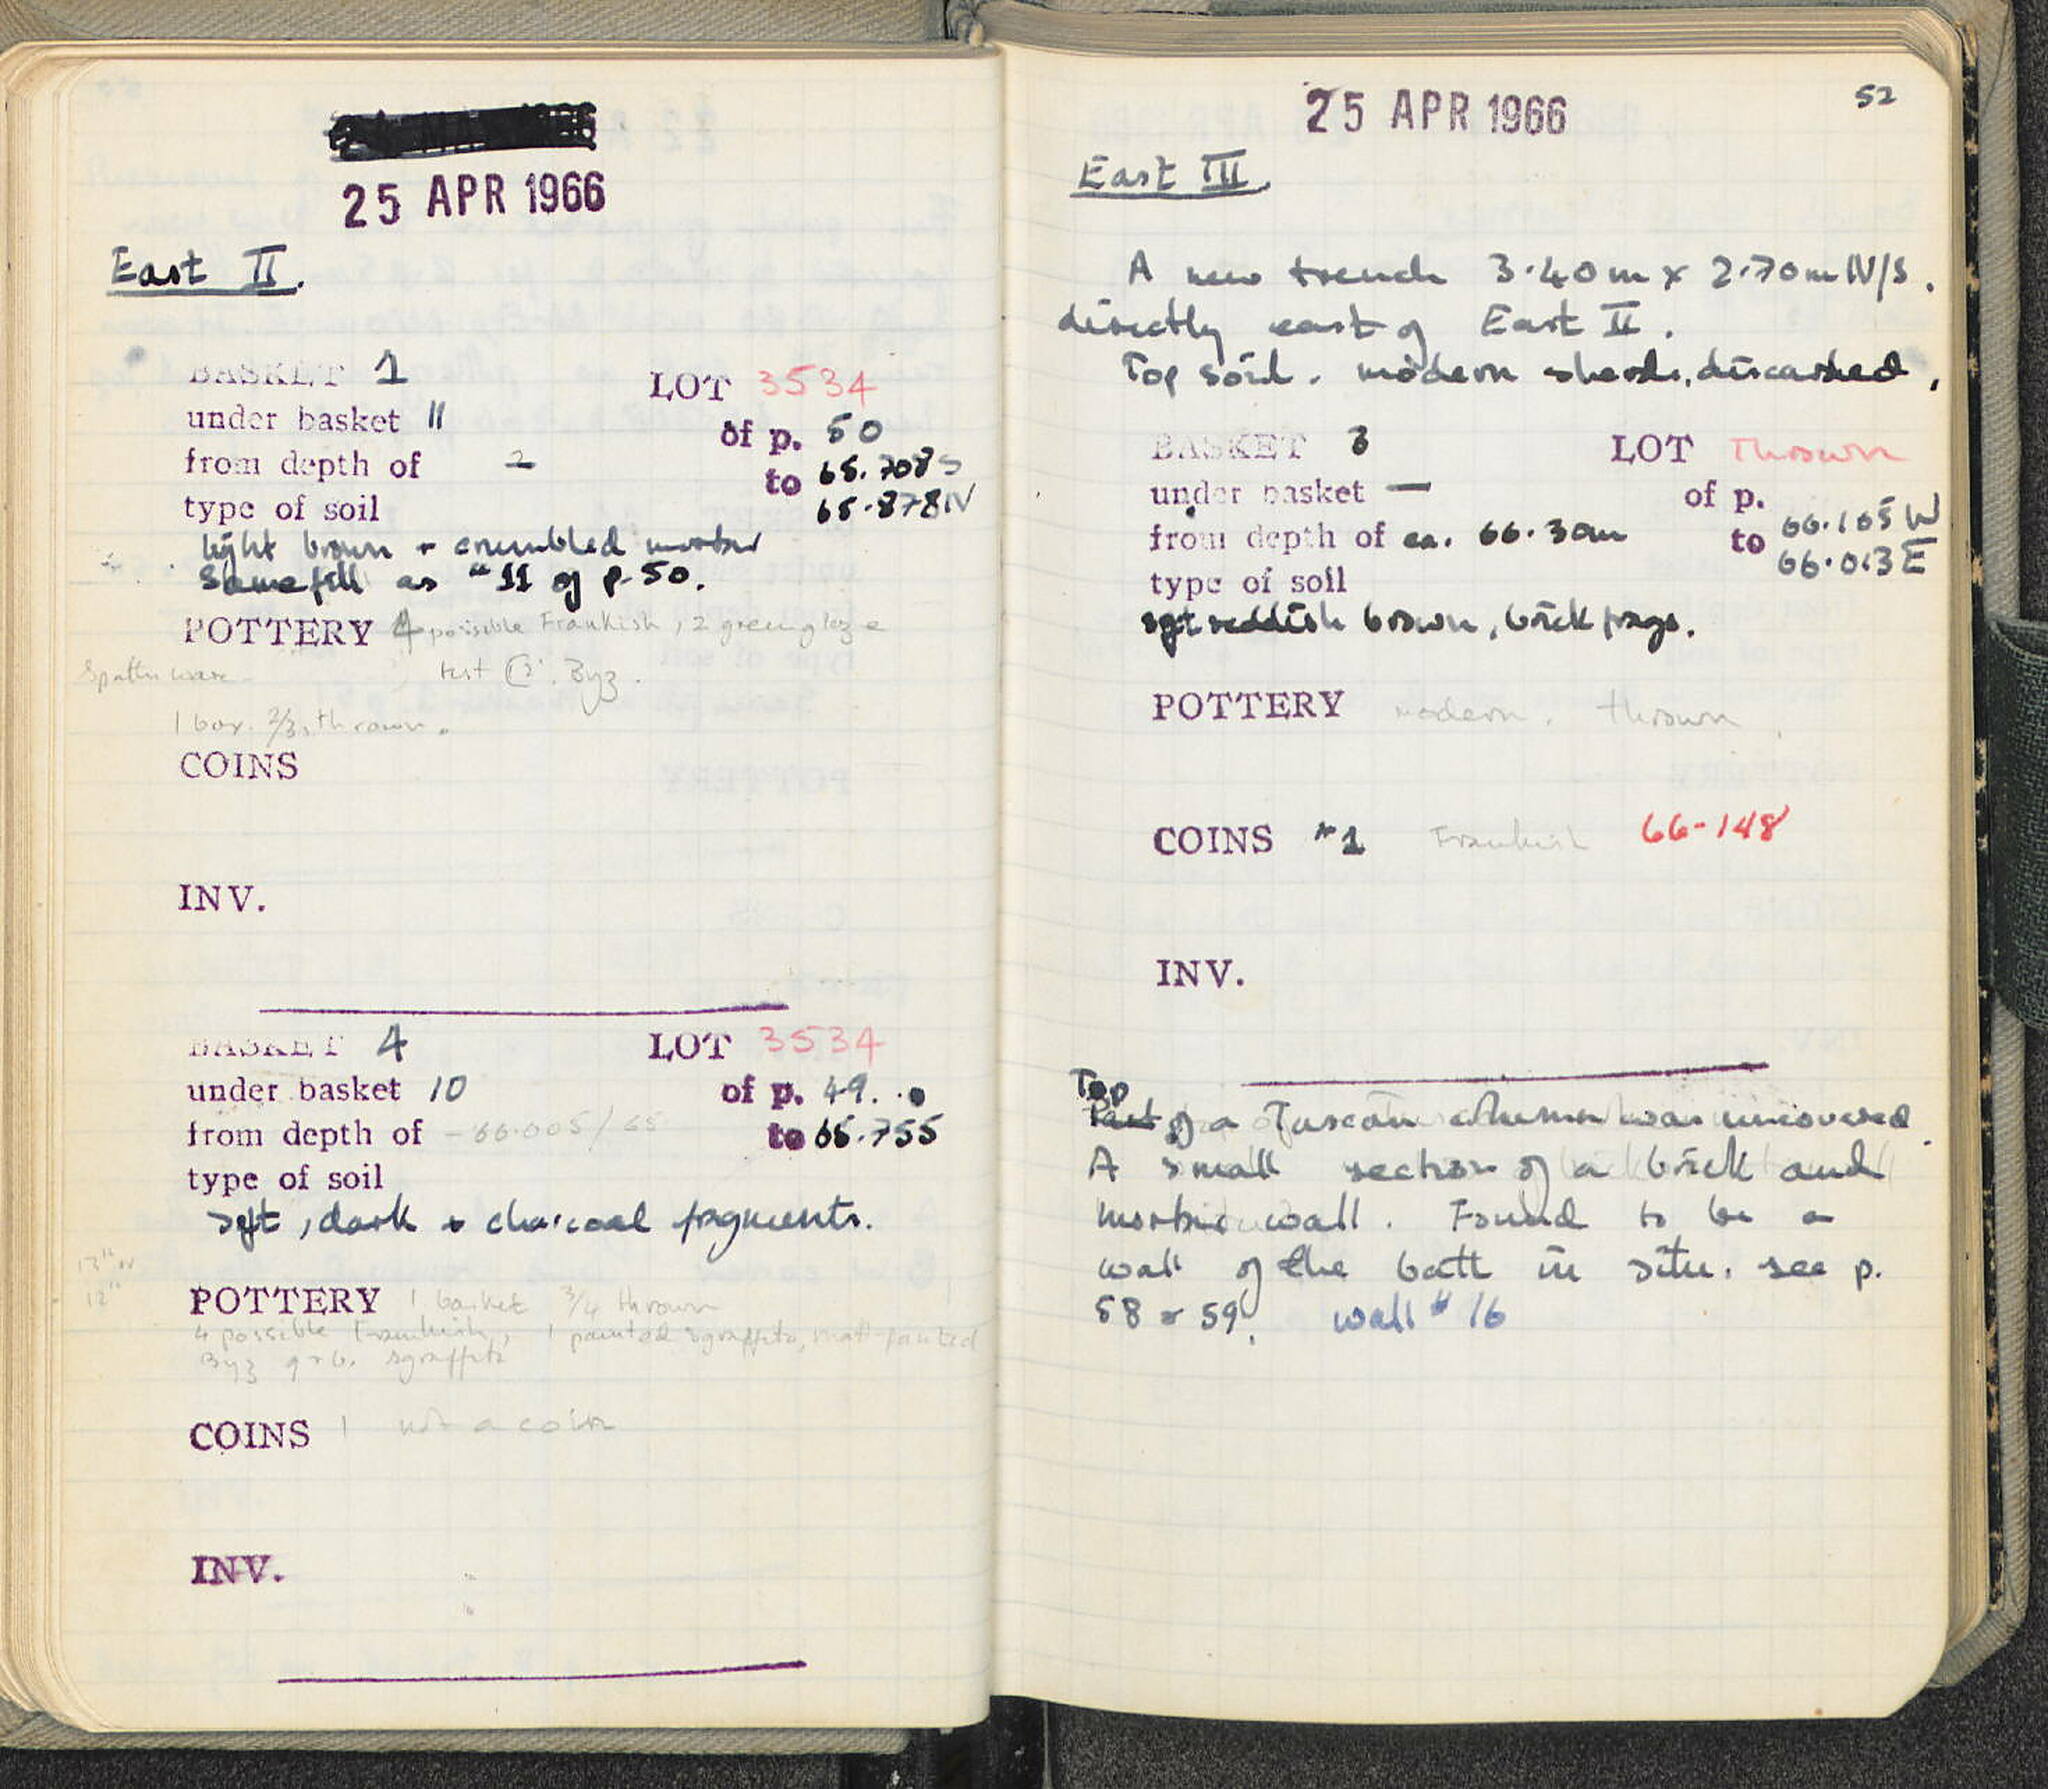 25 APR 1966
East II.
BASKET 1 LOT 3534
under basket 11 of p. 50
from depth of to 65.708 S
65.878 N
type of soil
light brown + crumbled mortar
Same fill as #11 of p. 50.
POTTERY 4 possible Frankish, 2 green glaze
Spatter ware rest Byz.
1 box. 2/3 thrown.
COINS
INV.
BASKET 4 LOT 3534
under basket 10 of p. 49.
from depth of - 66.005/65 to 65.755
type of soil
soft, dark + charcoal fragments.
POTTERY 1 basket 3/4 thrown
4 possible Frankish, 1 painted sgraffito, matt-painted
Byz sgraffito
COINS 1 not a coin
INV.
52
25 APR 1966
East III.
A new trench 3.40m x 2.70m N/S.
directly east of East II.
Top soil. modern sherds, discarded.
BASKET 3 LOT Thrown
under basket — of p.
from depth of ca. 66.30m to 66.105 W
66.013 E
type of soil
soft reddish brown, brick frags.
POTTERY modern. thrown
COINS #1 Frankish 66-148
INV.
Top
Part of a Tuscan column was uncovered.
A small section of a brick and
mortar wall. Found to be a
wall of the bath in situ. see p.
58 & 59. wall # 16